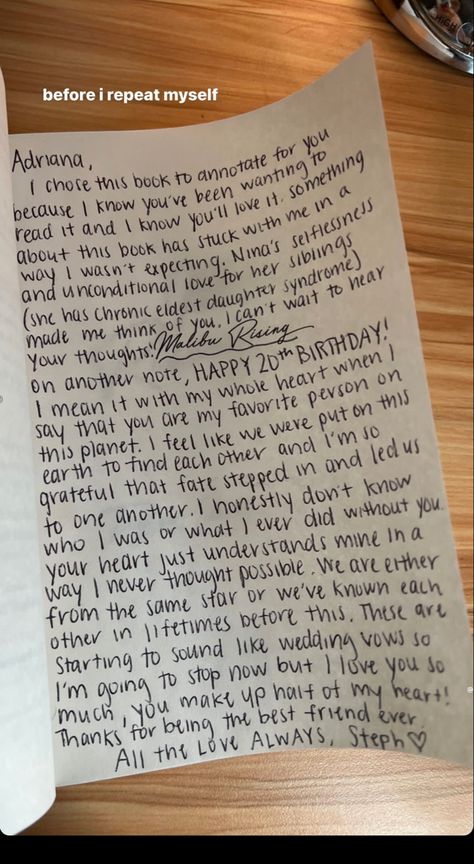 before i repeat myself
Adriana,
I chose this book to annotate for you
because I know you've been wanting to
read it and I know you'll love it. something
about this book has stuck with me in a
way I wasn't expecting. Nina's selflessness
and unconditional love for her siblings
(she has chronic eldest daughter syndrome)
made me think of you. I can't wait to hear
your thoughts!
Malibu Rising
on another note, HAPPY 20th BIRTHDAY!
I mean it with my whole heart when I
say that you are my favorite person on
this planet. I feel like we were put on this
earth to find each other and I'm so
grateful that fate stepped in and led us
to one another. I honestly don't know
who I was or what I ever did without you.
your heart just understands mine in a
way I never thought possible. We are either
from the same star or we've known each
other in lifetimes before this. These are
starting to sound like wedding vows so
I'm going to stop now but I love you so
much, you make up half of my heart!
Thanks for being the best friend ever.
All the Love ALWAYS, Steph♡
HIGH